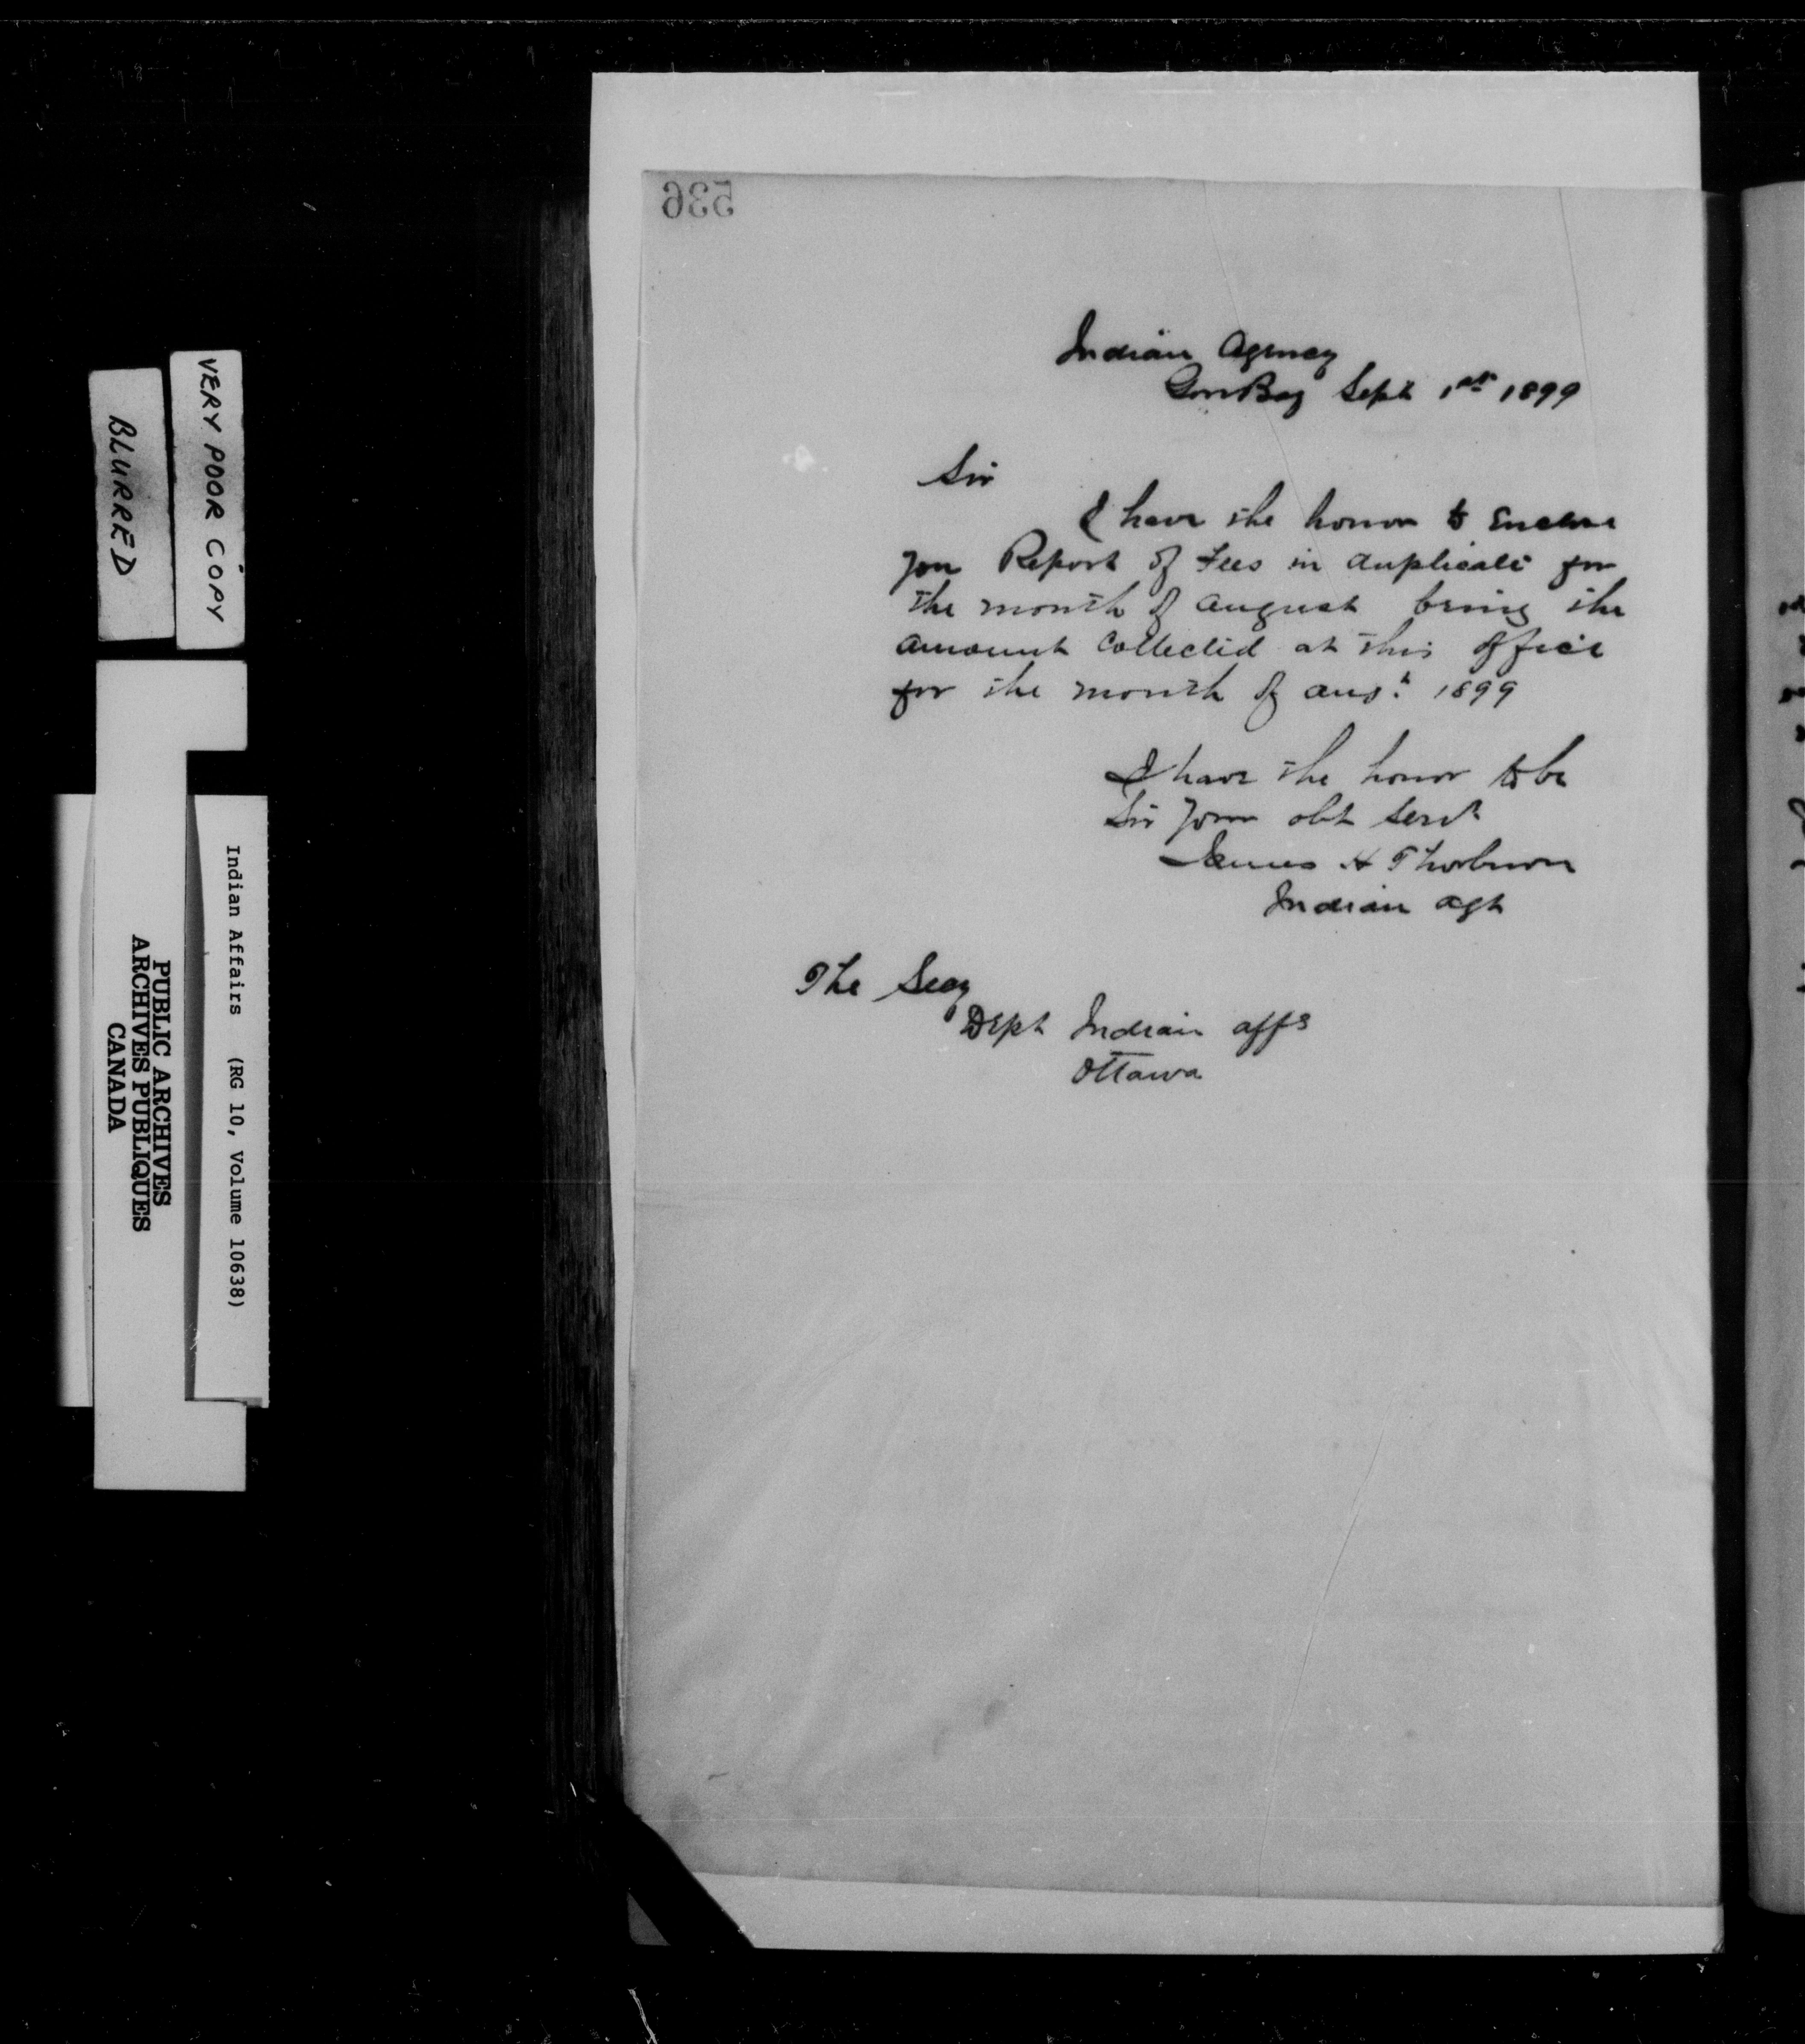 536
Indian Agency
Gore Bay Sept 1st 1899
Sir
I have the honor to Enclose
you Report of Fees in duplicate for
the month of August being the
amount Collected at this office
for the month of Augt 1899
I have the honor to be
Sir Your obt Servt
James H Thorburn
Indian Agt
The Secy
Dept Indian Affs
Ottawa
VERY POOR COPY
BLURRED
Indian Affairs (RG 10, Volume 10638)
PUBLIC ARCHIVES
ARCHIVES PUBLIQUES
CANADA